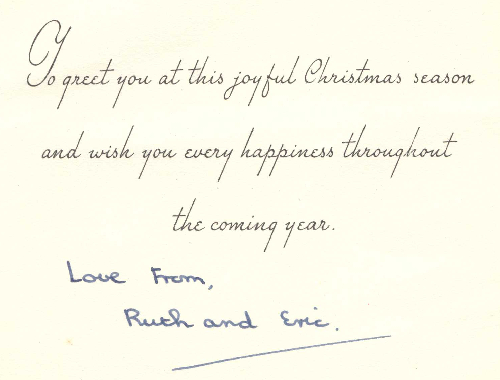 To greet you at this joyful Christmas season
and wish you every happiness throughout
the coming year.
Love From,
Ruth and Eric.